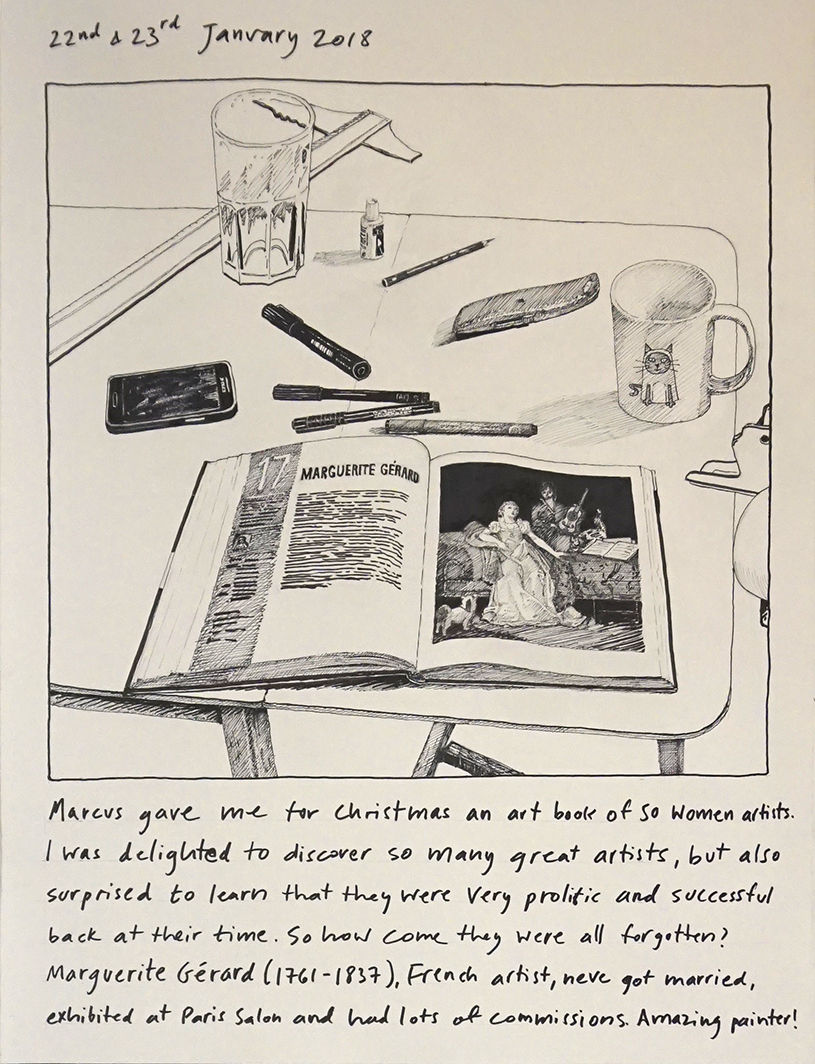 22nd & 23rd January 2018
17
MARGUERITE GÉRARD
Marcus gave me for Christmas an art book of 50 women artists.
I was delighted to discover so many great artists, but also
surprised to learn that they were very prolific and successful
back at their time. So how come they were all forgotten?
Marguerite Gérard (1761-1837), French artist, neve got married,
exhibited at Paris Salon and had lots of commissions. Amazing painter!